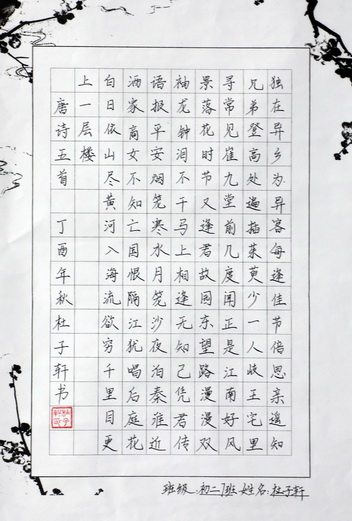 独在异乡为异客每逢佳节倍思亲遥知
兄弟登高处遍插茱萸少一人岐王宅里
寻常见崔九堂前几度闻正是江南好风
景落花时节又逢君故园东望路漫漫双
袖龙钟泪不干马上相逢无知己凭君传
语报平安烟笼寒水月笼沙夜泊秦淮近
酒家商女不知亡国恨隔江犹唱后庭花
白日依山尽黄河入海流欲穷千里目更
上一层楼
唐诗五首 丁酉年秋杜子轩书
班级:初二7班 姓名:杜子轩